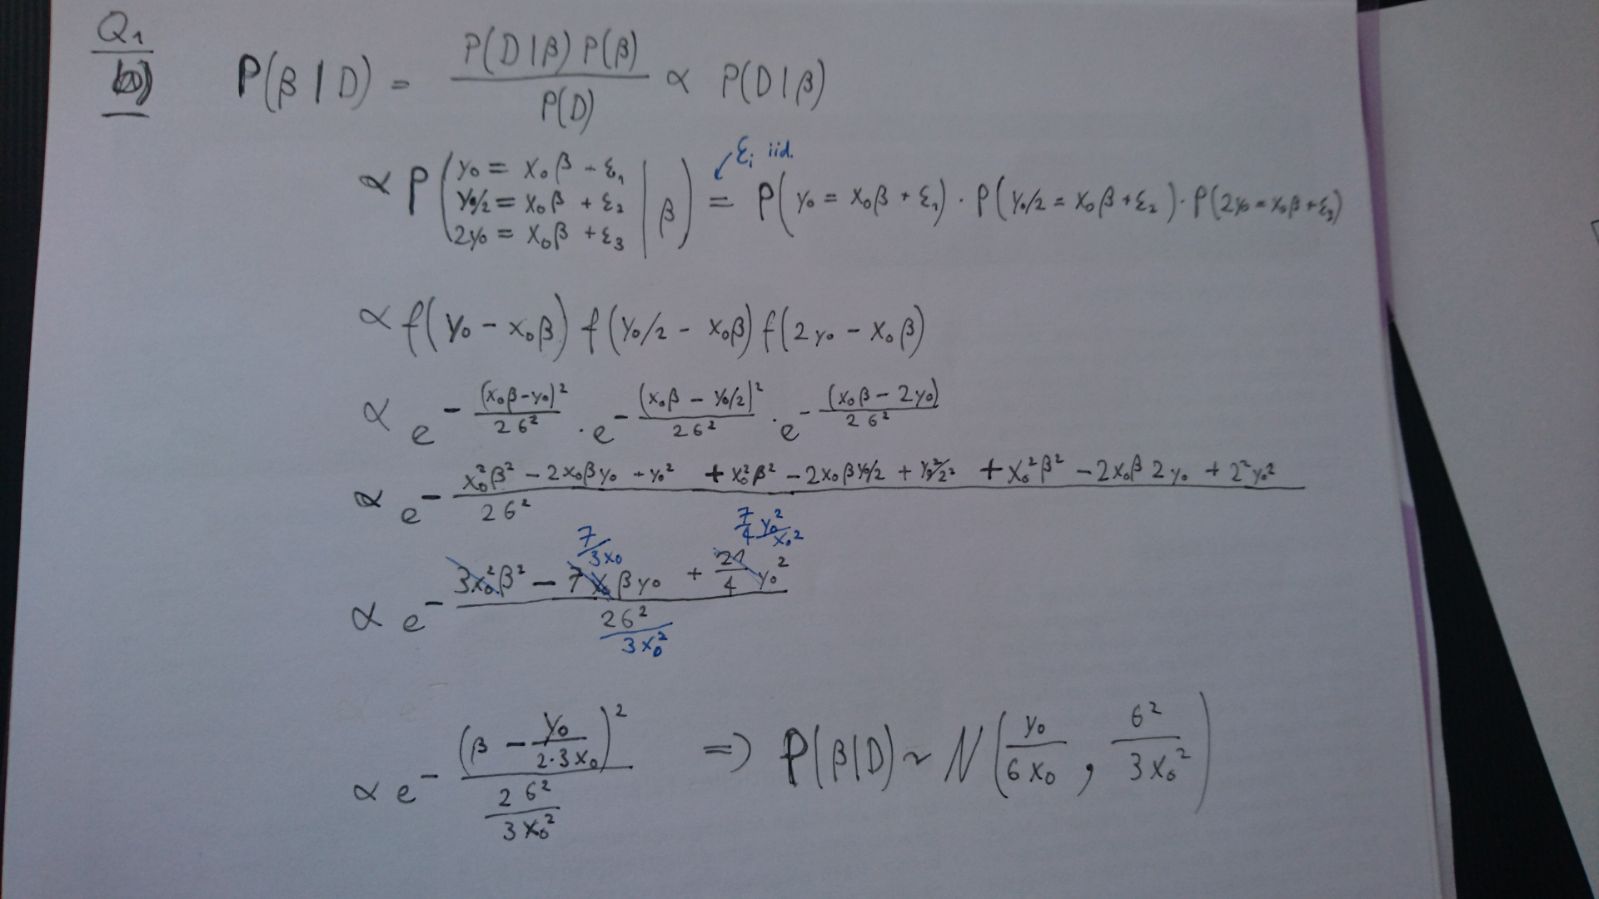 Q1
b)
P(β|D) = P(D|β) P(β) / P(D) ∝ P(D|β)
εi iid.
∝ P( y0 = x0β - ε1, y0/2 = x0β + ε2, 2y0 = x0β + ε3 | β ) = P( y0 = x0β + ε1 ) · P( y0/2 = x0β + ε2 ) · P( 2y0 = x0β + ε3 )
∝ f( y0 - x0β ) f( y0/2 - x0β ) f( 2y0 - x0β )
∝ e^-(x0β - y0)²/2б² · e^-(x0β - y0/2)²/2б² · e^-(x0β - 2y0)/2б²
∝ e^-(x0²β² - 2x0βy0 + y0² + x0²β² - 2x0βy0/2 + y0²/2² + x0²β² - 2x0β2y0 + 2²y0²)/2б²
7/3x0 7/4 y0²/x0²
∝ e^-(3x0²β² - 7x0βy0 + 21/4 y0²)/2б²
3x0²
∝ e^-(β - y0/2·3x0)²/(2б²/3x0²) => P(β|D) ~ N( y0/6x0 , б²/3x0² )